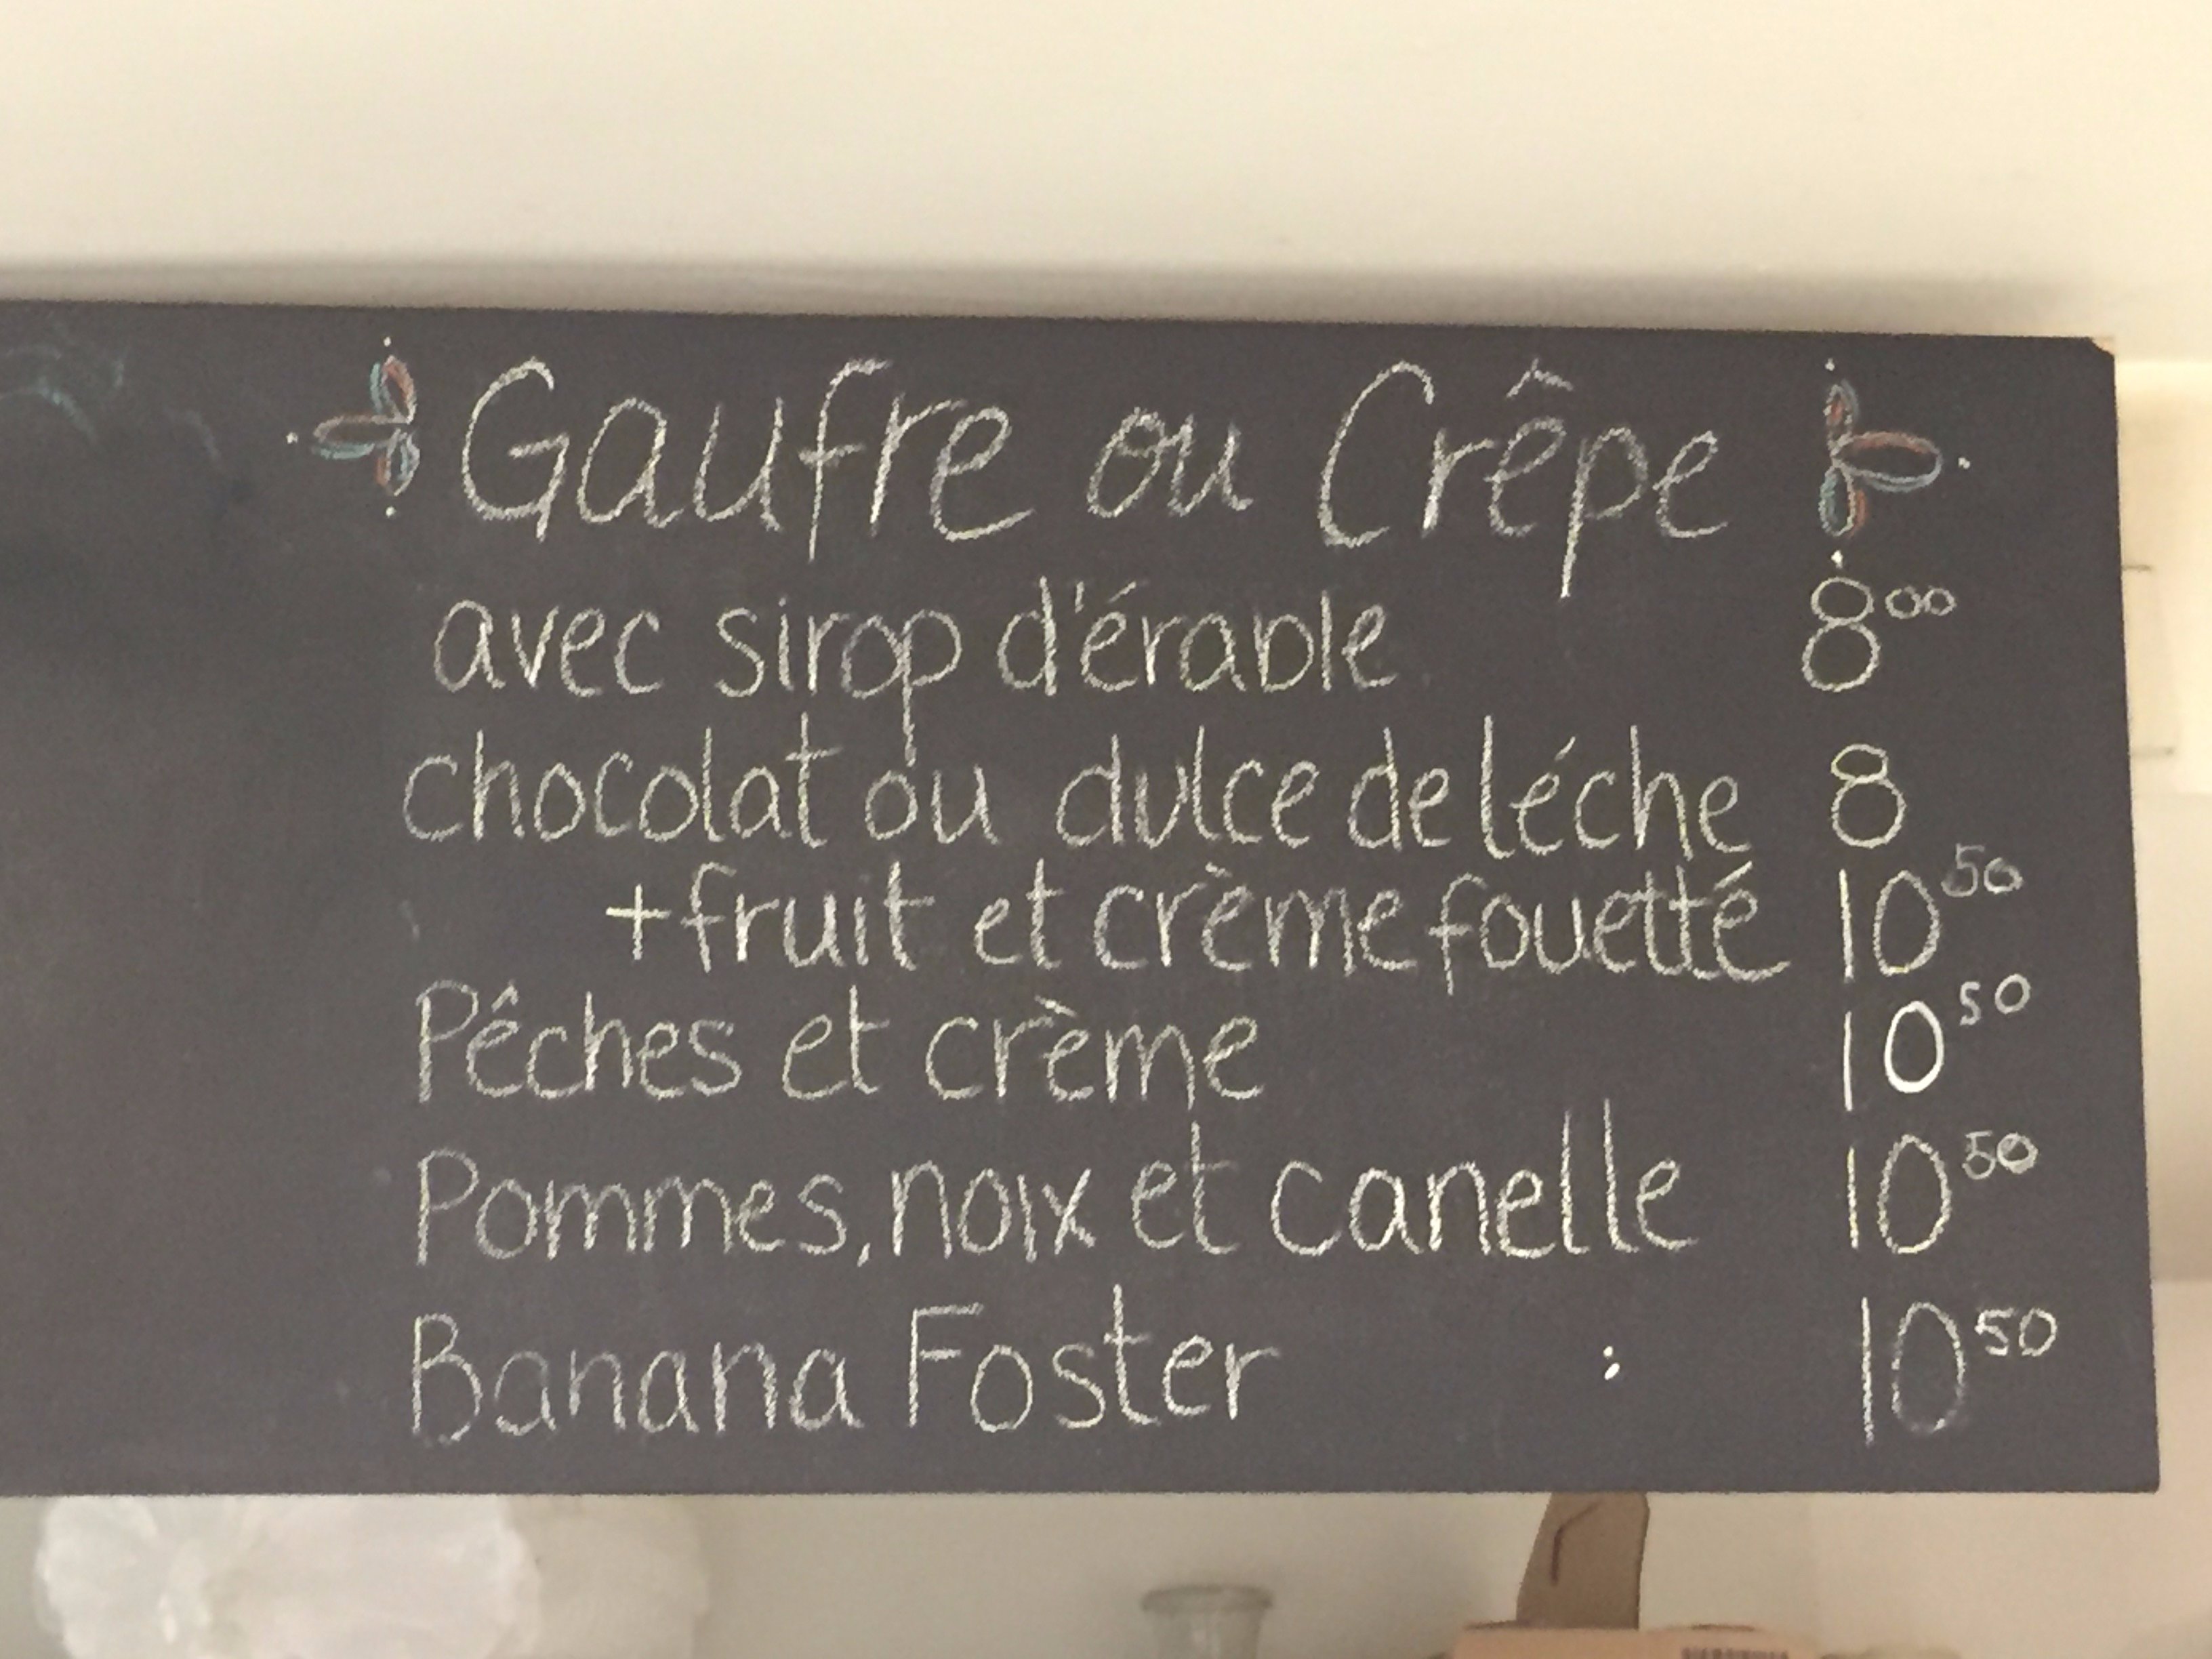 Gaufre ou Crêpe
avec sirop d'érable 8⁰⁰
chocolat ou dulce de léche 8
+ fruit et crème fouetté 10⁵⁰
Pêches et crème 10⁵⁰
Pommes, noix et canelle 10⁵⁰
Banana Foster : 10⁵⁰